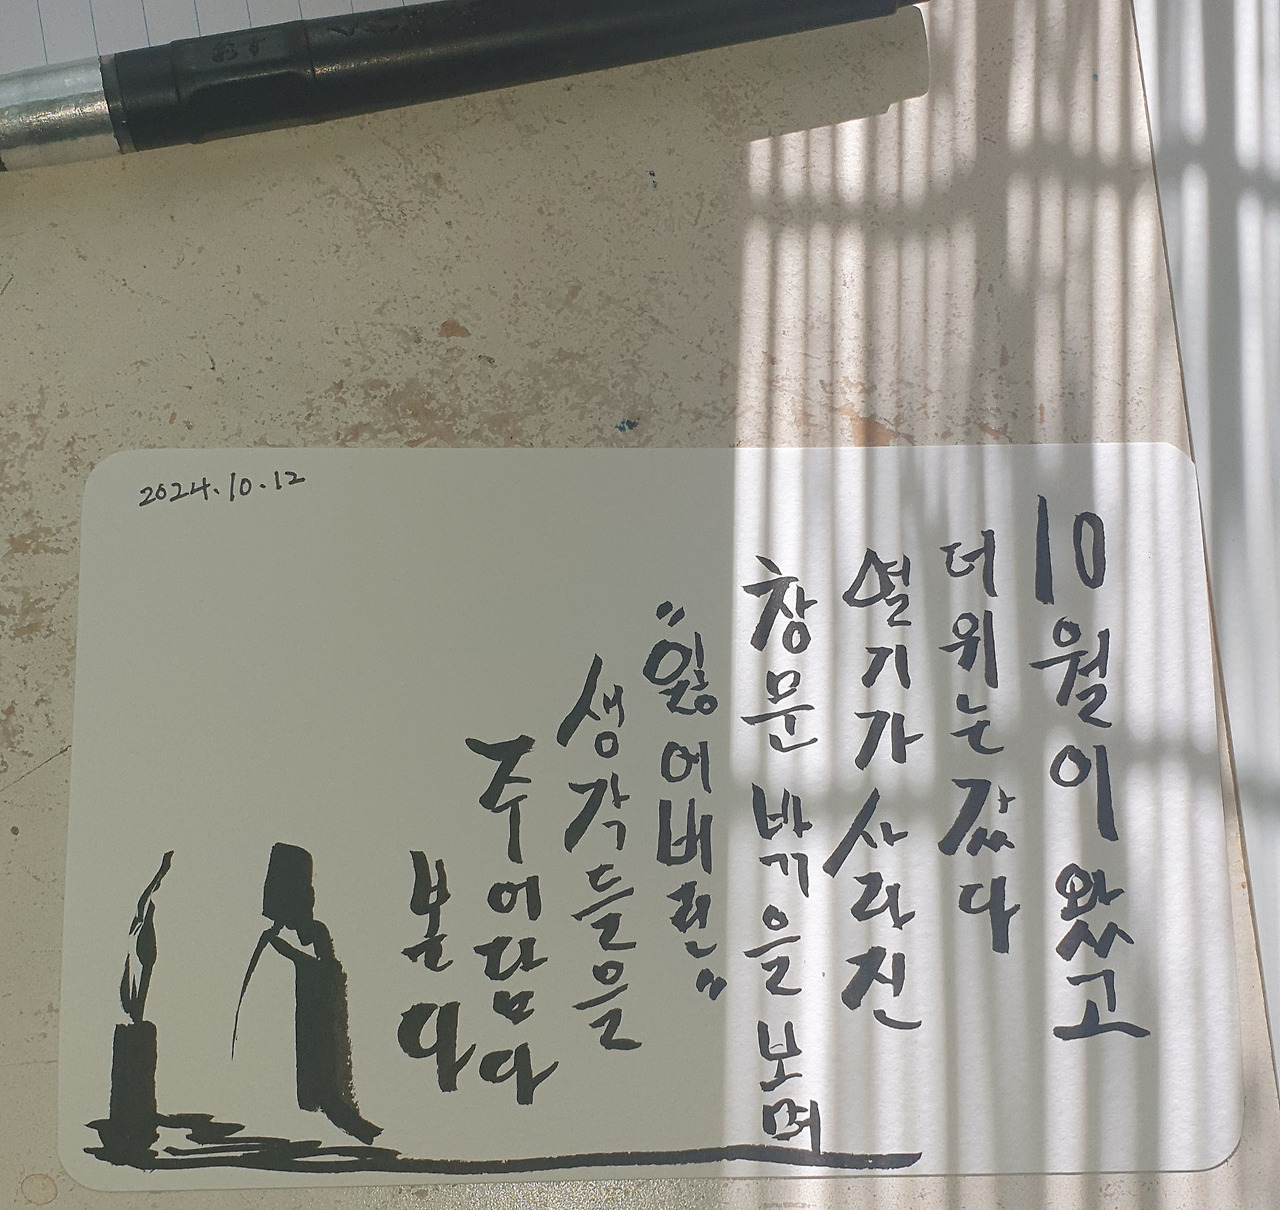 2024.10.12
10월이 왔고
더위는 갔다
열기가 사라진
창문 밖을 보며
"잃어버린"
생각들을
주어담아
본다